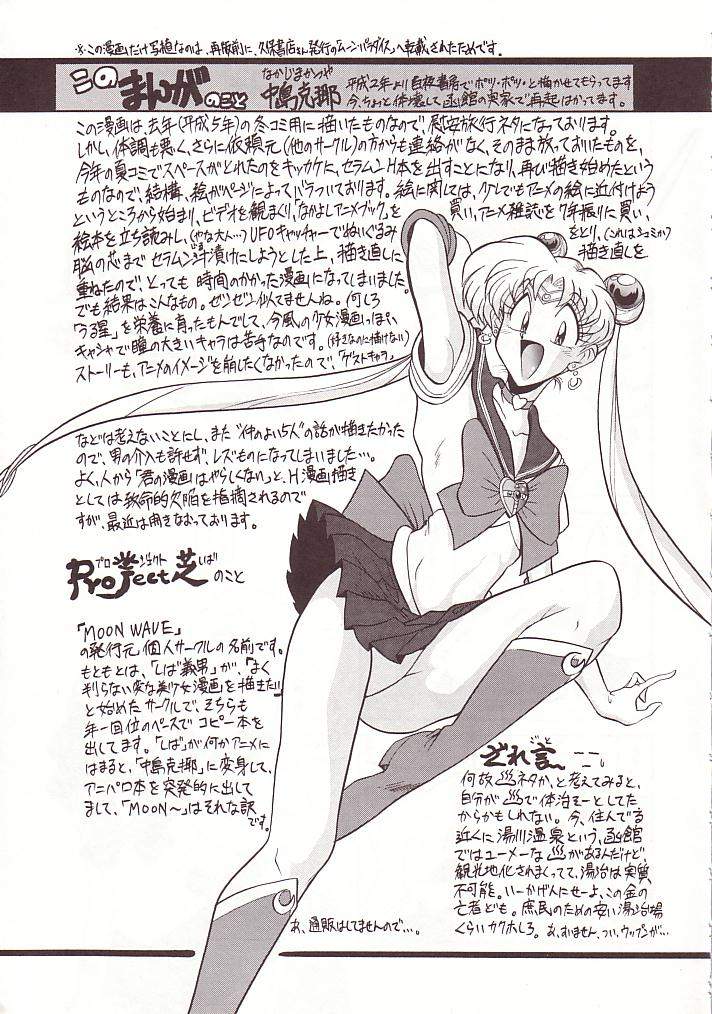 ※この漫画だけ写植なのは、再版前に、久保書店さん発行の「ムーンパラダイス」へ転載されたためです。
このまんがのこと
なかじまかつや
中島克耶
平成2年より白夜書房でポツ・ポツ・と描かせてもらってます
今、ちょっと体壊して函館の実家で再起はかってます。
この漫画は、去年(平成5年)の冬コミ用に描いたものなので、慰安旅行ネタになっております。
しかし、体調も悪く、さらに依頼元(他のサークル)の方からも連絡がなく、そのまま放っておいたものを、
今年の夏コミでスペースがとれたのをキッカケに、セラムンH本を出すことになり、再び描き始めたという
ものなので、結構、絵がページによってバラついております。絵に関しては、少しでもアニメの絵に近付けよう
というところから始まり、ビデオを観まくり「なかよしアニメブック」を買い、アニメ雑誌を7年振りに買い、
絵本を立ち読みし、(やな大人…)UFOキャッチャーでぬいぐるみをとり、(これはシュミか)
脳の芯までセラムン汁漬けにしようとした上、描き直しに描き直しを
重ねたので、とっても時間のかかった漫画になってしまいました。
でも結果はこんなもの。ゼンゼン似てませんね。何しろ
「うる星」を栄養に育ったもんでして、今風の少女漫画っぽい、
キャシャで瞳の大きいキャラは苦手なのです。(好きなのに描けない)
ストーリーも、アニメのイメージを崩したくなかったので、「ゲストキャラ」
などは考えないことにし、また“仲のよい5人”の話が描きたかった
ので、男の介入も許せず、レズものになってしまいました…。
よく、人から「君の漫画はやらしくない」と、H漫画描き
としては致命的欠陥を指摘されるので
すが、最近は開きなおっております。
プロジェクトしば
Project芝のこと
「MOON WAVE」
の発行元、個人サークルの名前です。
もともとは、「しば義男」が「よく
判らない変な美少女漫画」を描きたい
と始めたサークルで、そちらも
年一回位のペースでコピー本を
出してます。「しば」が何かアニメに
はまると、「中島克耶」に変身して、
アニパロ本を突発的に出して
まして、「MOON〜」はそれな訳
です。
あ、通販はしてませんので…。
ざれ言
ごと
何故♨ネタか、と考えてみると、
自分が♨で体治そーとしてた
からかもしれない。今、住んでる
近くに湯川温泉という、函館
ではユーメーな♨があるんだけど、
観光地化されまくってて、湯治は実質
不可能。いーかげんにせーよ、この金の
亡者ども。庶民のための安い湯治場
くらいカクホしろ。あ、すいません、つい、ウップンが…